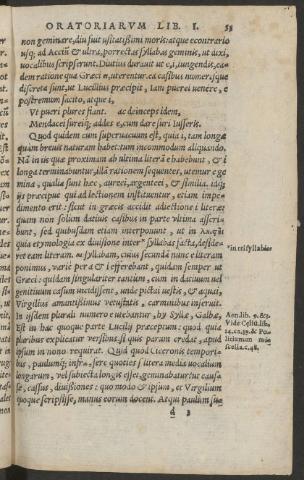 ORATORIARVM LIB. I. 53
non geminare, diu fuit usitatissimi moris: atque econtrario
usq; ad Acciũ & ultra, porrectas syllabas geminis, ut dixi,
uocalibus scripserunt. Diutius durauit ut e, i, iungendis, ea-
dem ratione qua Græci ει, uterentur. ea casibus numerisque
discreta sunt, ut Lucilius præcipit, Iam puerei uenere, e
postremum facito, atque i,
Vt puerei plures fiant. ac deinceps idem,
Mendacei fureiq; addes e, cum dare furi iusseris.
Quod quidem cum superuacuum est, quia i, tam longæ
quàm breuis naturam habet: tum incommodum aliquando.
Nã in iis quæ proximam ab ultima literã e habebunt, & i
longa terminabuntur, illã rationem sequentes, utemur e ge
mina, qualia sunt hæc, aurei, argentei, & similia. idq;
iis præcipue qui ad lectionem instituentur, etiam impe-
dimento erit: sicut in græcis accidit adiectione i literæ
quam non solum datiuis casibus in parte ultima asscri-
bunt, sed quibusdam etiam interponunt, ut in
quia etymologia ex diuisione inter* syllabas facta, deside-
ret eam literam. æ syllabam, cuius secundã nunc e literam
ponimus, uariè per a & i efferebant, quidam semper ut
Græci: quidam singulariter tantum, cum in datiuum uel
genitiuum casum incidissent, unde pictai uestis, & aquai,
Virgilius amantissimus uetustatis, carminibus inseruit.
In iisdem plurali numero e utebantur, hi Syllæ, Galbæ,
Est in hac quoque parte Lucilij præceptum: quod quia
pluribus explicatur uersibus, si quis parum credat, apud
ipsum in nono requirat. Quid quod Ciceronis tempori-
bus, paulumq; infra, fere quoties s litera media uocalium
longarum, uel subiecta longis esset, geminabatur? ut caussa
sæ, cassus, diuissiones: quo modo & ipsum, et Virgilium
quoque scripsisse, manus eorum docent. Atqui paulum su-
d 3
*in trisyllabas
Aen. lib. 9. &
Vide